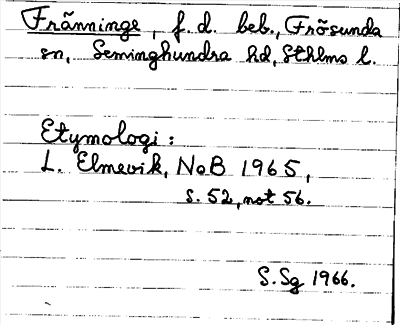 Fränninge, f. d. beb., Frösunda
sn, Seminghundra hd, Sthlms l.
Etymologi:
L. Elmevik, NoB 1965,
s. 52, not 56.
S. Sg 1966.